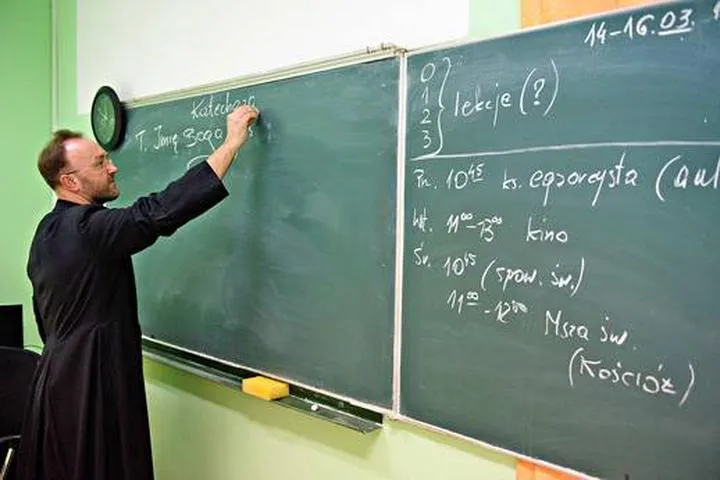 Katecheza
T. Imię Boga
14-16.03.
0
1
2
3
lekcje (?)
Pn. 10⁴⁵ ks. egzorcysta (aul
Wt. 11⁰⁰-13⁰⁰ kino
Śr. 10⁴⁵ (spow. św.)
11⁰⁰-12⁰⁰ Msza św.
(Kościół)